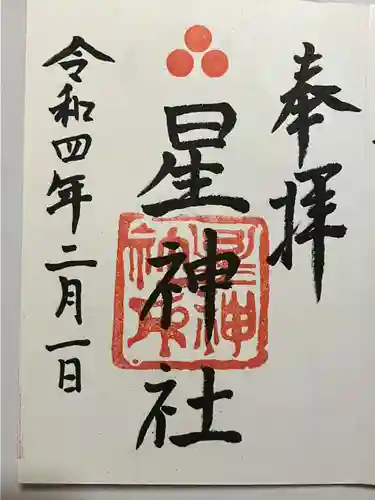 奉拝
星神社
星神社印
令和四年二月一日